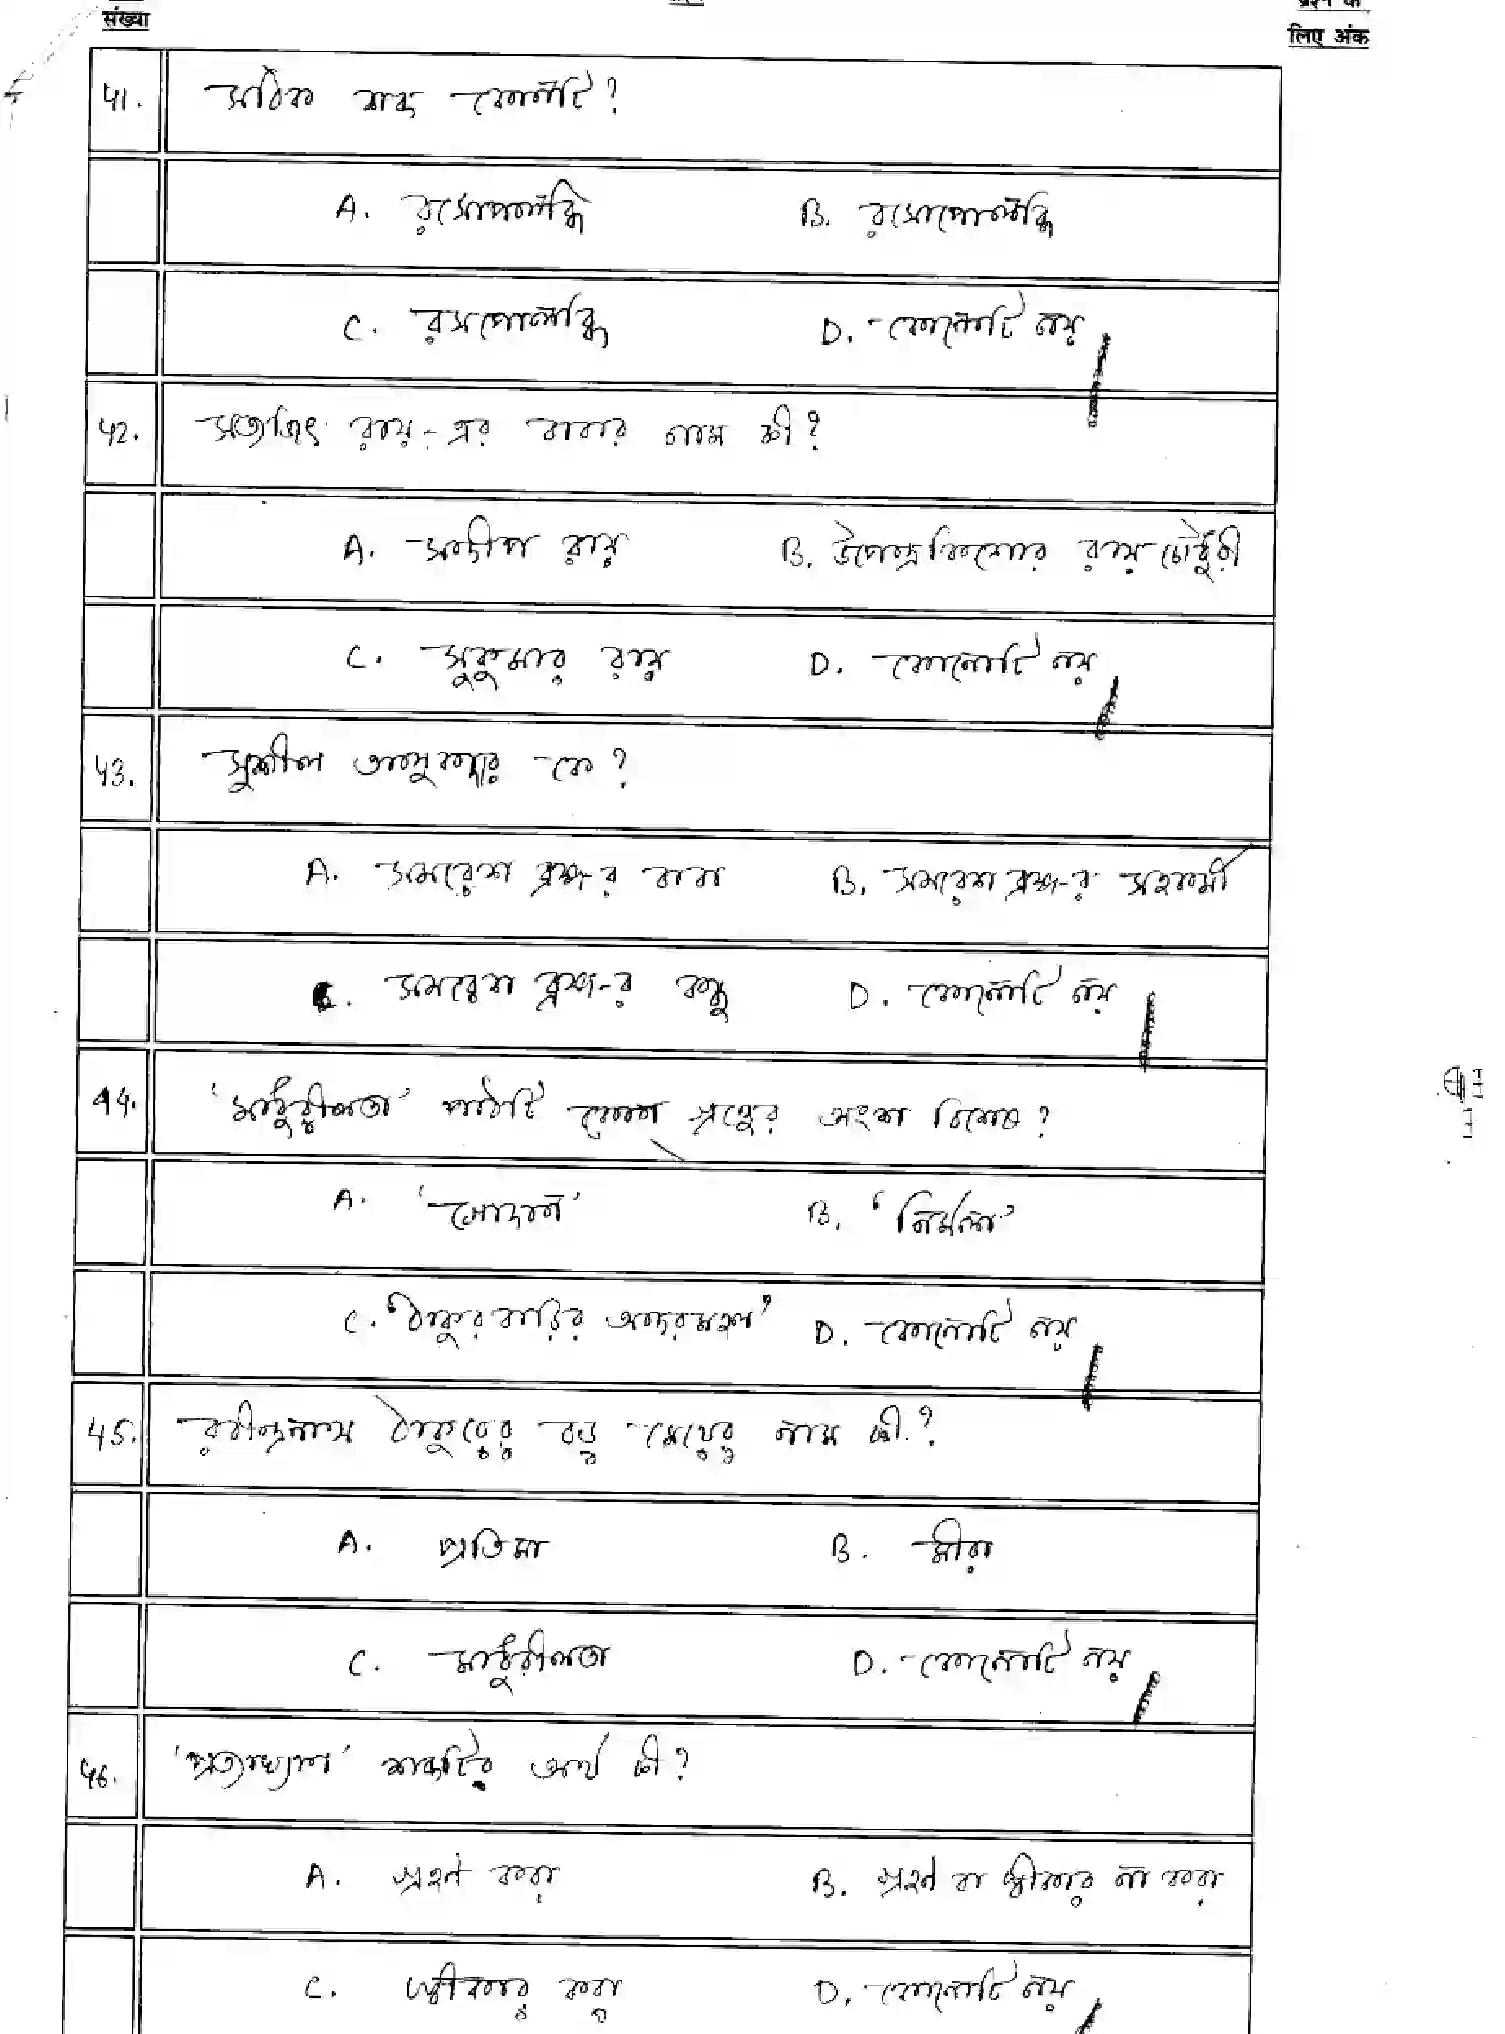 संख्या
प्रश्न के
लिए अंक
41. সঠিক শব্দ কোনটি?
A. রসোপলব্ধি B. রসোপোলব্ধি
C. রসপোলব্ধি D. কোনোটি নয়
42. সত্যজিৎ রায়-এর বাবার নাম কী?
A. সন্দীপ রায় B. উপেন্দ্রকিশোর রায়চৌধুরী
C. সুকুমার রায় D. কোনোটি নয়
43. সুশীল জানুবন্দার কে?
A. সমরেশ বসু-র বাবা B. সমরেশ বসু-র সহকর্মী
C. সমরেশ বসু-র বন্ধু D. কোনোটি নয়
44. 'মাধুরীলতা' পাঠটি কোন গ্রন্থের অংশ বিশেষ?
A. 'সোপান' B. 'নির্মলা'
C. 'ঠাকুরবাড়ির অন্দরমহল' D. কোনোটি নয়
45. রবীন্দ্রনাথ ঠাকুরের বড় মেয়ের নাম কী?
A. প্রতিমা B. মীরা
C. মাধুরীলতা D. কোনোটি নয়
46. 'প্রত্যাখ্যান' শব্দটির অর্থ কী?
A. গ্রহণ করা B. গ্রহণ বা স্বীকার না করা
C. স্বীকার করা D. কোনোটি নয়